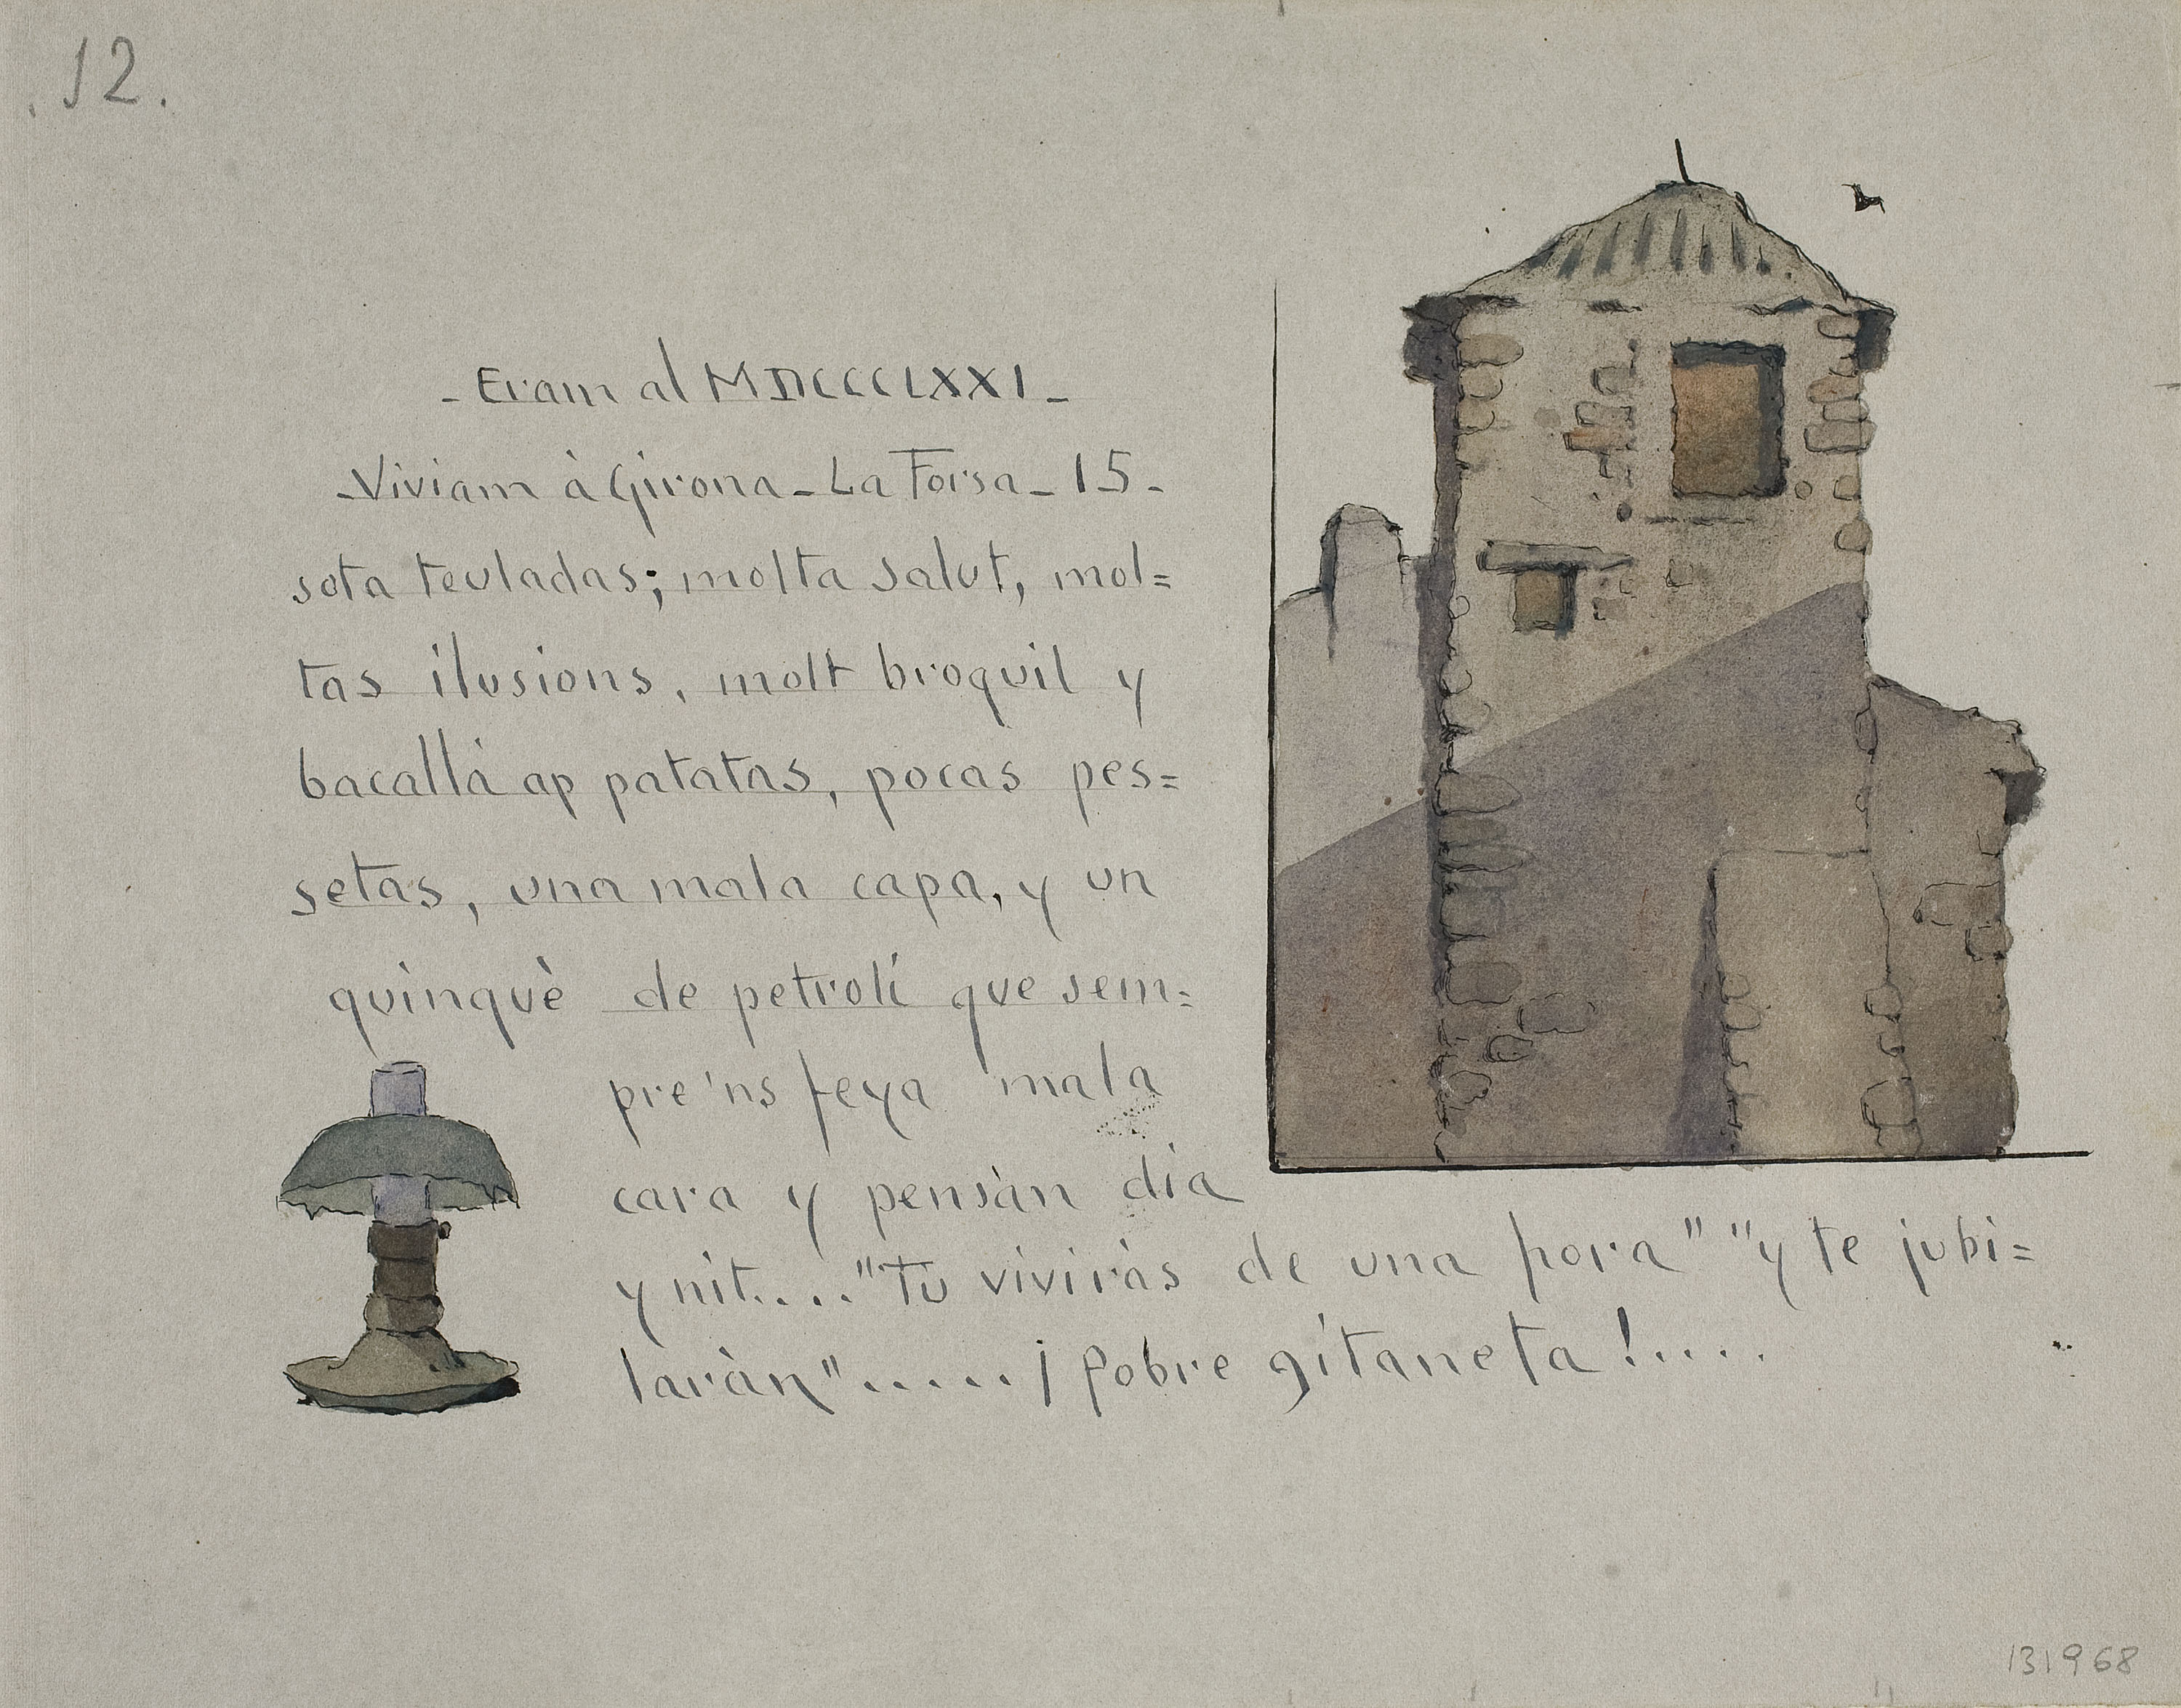 .12.
- Eram al MDCCCCLXXI -
- Viviam à Girona - La Forsa - 15 -
sota teuladas; molta salut, mol=
tas ilusions, molt broquil y
bacallà ap patatas, pocas pes=
setas, una mala capa, y un
quinquè de petroli que sem=
pre'ns feya mala
cara y pensàn dia
y nit...."Tu viviràs de una hora" "y te jubi=
laràn"......¡Pobre gitaneta!....
131968